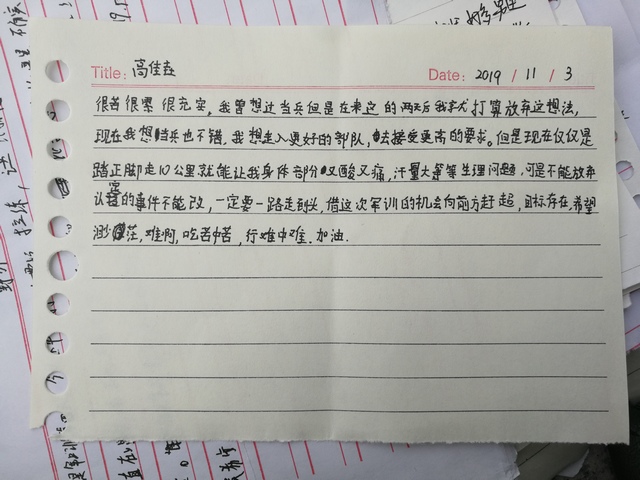 Title: 高佳垚
Date: 2019 / 11 / 3
很苦很累很充实，我曾想过当兵但是在来这的两天后我就打算放弃这想法，
现在我想当兵也不错，我想走入更好的部队，去接受更高的要求。但是现在仅仅是
踏正脚走10公里就能让我身体部份又酸又痛，汗量大等等生理问题，可是不能放弃
认定的事件不能改，一定要一路走到头，借这次军训的机去向前方赶起，目标存在，希望
渺茫，难啊，吃苦中苦，行难中难．加油．